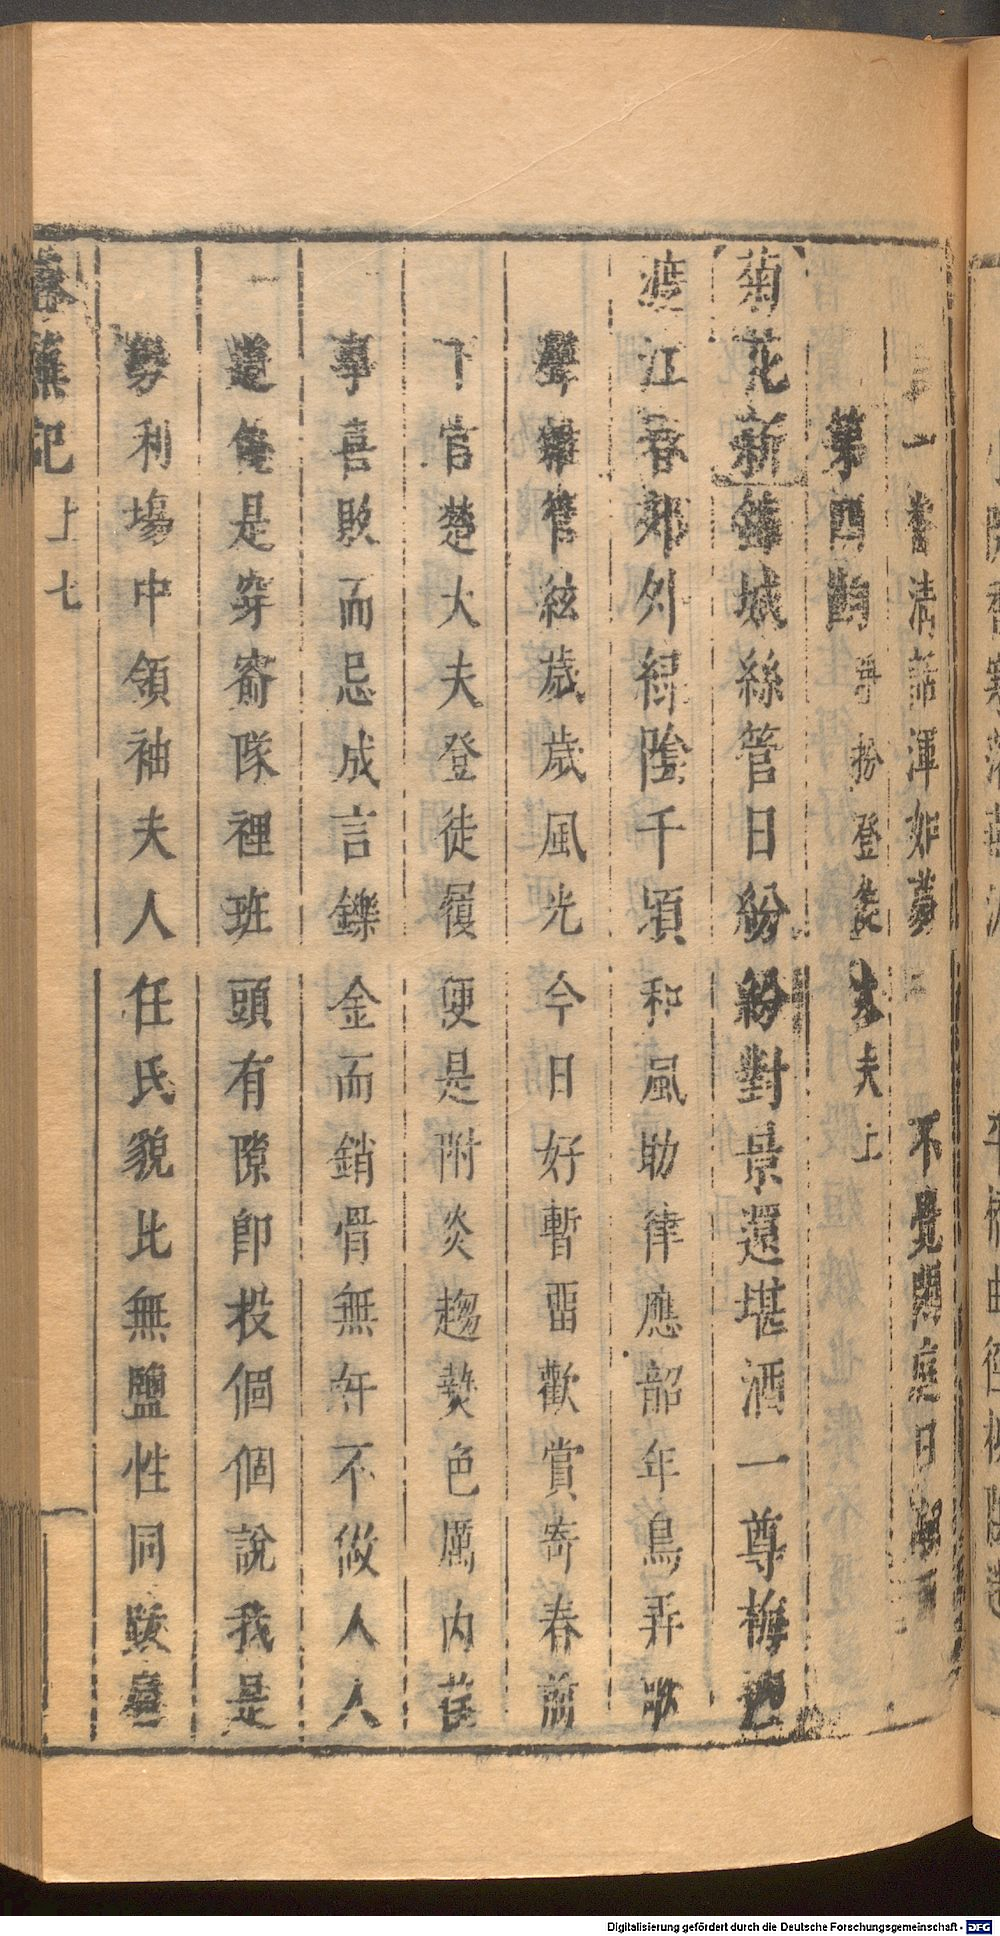 一 清話渾如夢 不覺閒庭日
第四齣 淨扮登徒大夫上
菊花新 錦城絲管日紛紛對景還堪酒一尊梅
渡江春郊外綠陰千頃 和風助律應韶年鳥弄歌
聲雜管絃歲歲風光 今日好暫畱歡賞奇春前
下官楚大夫登徒履 便是附炎趨熱色厲內荏
事喜敗而忌成言鑠 金而銷骨無奸不做人人
道俺是穿窬隊裡班 頭有隙卽投個個說我是
勢利場中領袖夫人 任氏貌比無鹽性同
蕉記 上 七
Digitalisierung gefördert durch die Deutsche Forschungsgemeinschaft - DFG